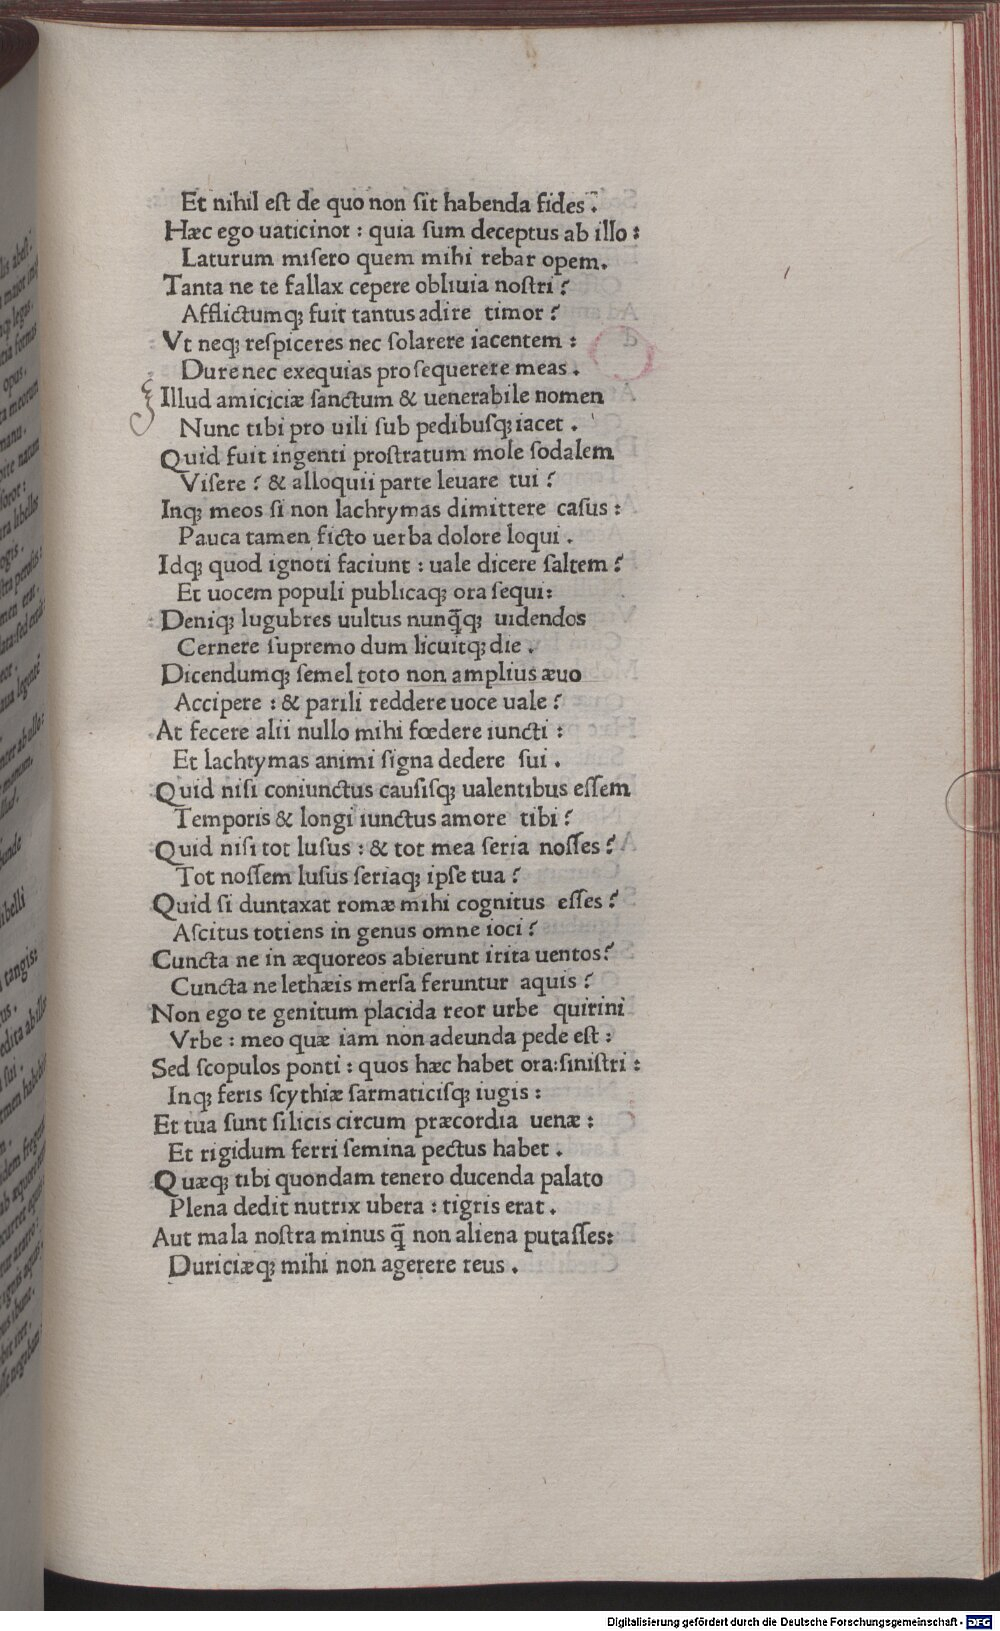 Et nihil est de quo non sit habenda fides?
Hæc ego uaticinor : quia sum deceptus ab illo :
Laturum misero quem mihi rebar opem.
Tanta ne te fallax cepere obliuia nostri ?
Afflictumq; fuit tantus adire timor ?
Vt neq; respiceres nec solarere iacentem :
Dure nec exequias prosequerere meas .
Illud amiciciæ sanctum & uenerabile nomen
Nunc tibi pro uili sub pedibusq; iacet .
Quid fuit ingenti prostratum mole sodalem
Visere ? & alloquii parte leuare tui ?
Inq; meos si non lachrymas dimittere casus :
Pauca tamen ficto uerba dolore loqui .
Idq; quod ignoti faciunt : uale dicere saltem ?
Et uocem populi publicaq; ora sequi:
Deniq; lugubres uultus nunq̄q; uidendos
Cernere supremo dum licuitq; die .
Dicendumq; semel toto non amplius æuo
Accipere : & parili reddere uoce uale ?
At fecere alii nullo mihi fœdere iuncti :
Et lachrymas animi signa dedere sui .
Quid nisi coniunctus causisq; ualentibus essem
Temporis & longi iunctus amore tibi ?
Quid nisi tot lusus : & tot mea seria nosses ?
Tot nossem lusus seriaq; ipse tua ?
Quid si duntaxat romæ mihi cognitus esses ?
Ascitus totiens in genus omne ioci ?
Cuncta ne in æquoreos abierunt irita uentos?
Cuncta ne lethæis mersa feruntur aquis ?
Non ego te genitum placida reor urbe quirini
Vrbe : meo quæ iam non adeunda pede est :
Sed scopulos ponti : quos hæc habet ora:sinistri :
Inq; feris scythiæ sarmaticisq; iugis :
Et tua sunt silicis circum præcordia uenæ :
Et rigidum ferri semina pectus habet .
Quæq; tibi quondam tenero ducenda palato
Plena dedit nutrix ubera : tigris erat .
Aut mala nostra minus q̄ non aliena putasses:
Duriciæq; mihi non agerere reus .
Digitalisierung gefördert durch die Deutsche Forschungsgemeinschaft - DFG